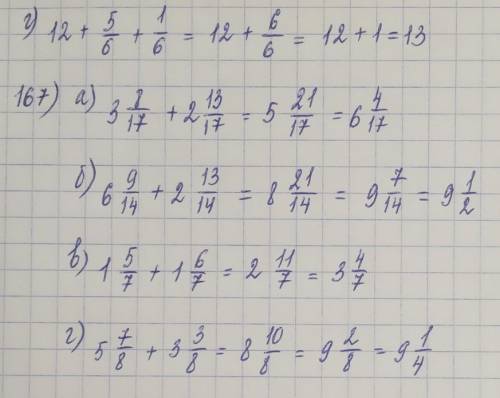 г) 12 + 5/6 + 1/6 = 12 + 6/6 = 12 + 1 = 13
167) а) 3 8/17 + 2 13/17 = 5 21/17 = 6 4/17
б) 6 9/14 + 2 13/14 = 8 21/14 = 9 7/14 = 9 1/2
в) 1 5/7 + 1 6/7 = 2 11/7 = 3 4/7
г) 5 7/8 + 3 3/8 = 8 10/8 = 9 2/8 = 9 1/4